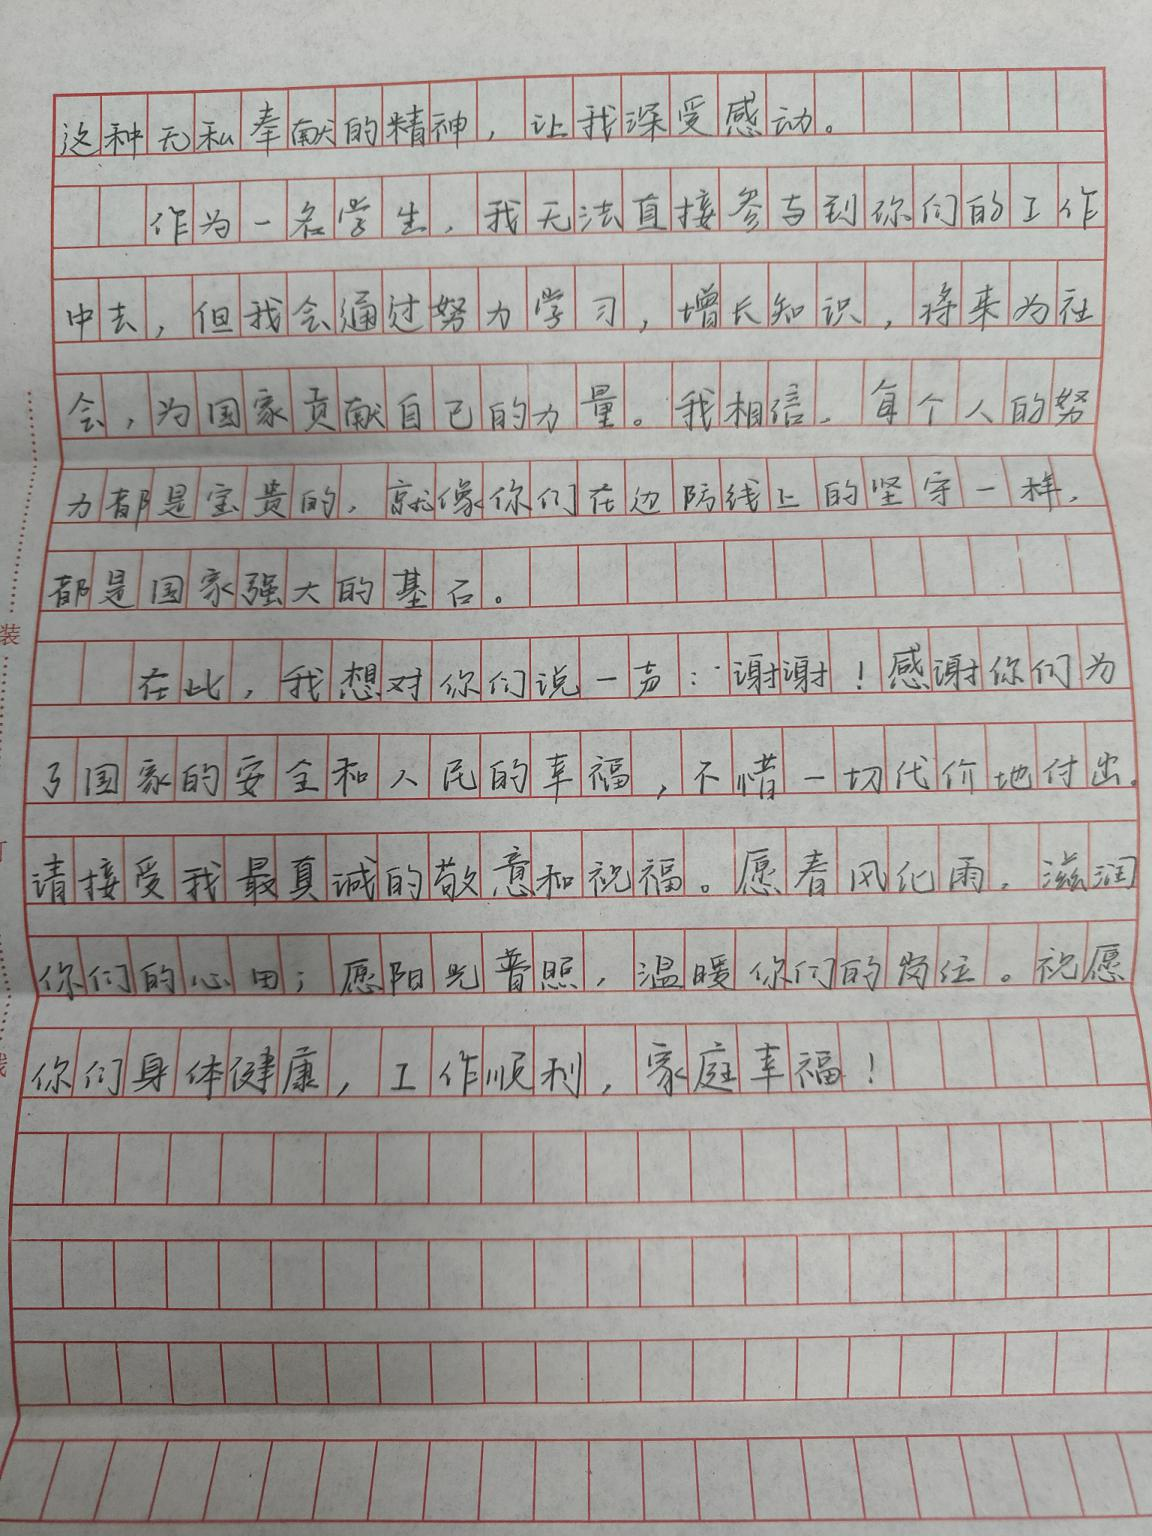 这种无私奉献的精神，让我深受感动。
作为一名学生，我无法直接参与到你们的工作
中去，但我会通过努力学习，增长知识，将来为社
会，为国家贡献自己的力量。我相信，每个人的努
力都是宝贵的，就像你们在边防线上的坚守一样，
都是国家强大的基石。
在此，我想对你们说一声：“谢谢！感谢你们为
了国家的安全和人民的幸福，不惜一切代价地付出，
请接受我最真诚的敬意和祝福。愿春风化雨，滋润
你们的心田；愿阳光普照，温暖你们的岗位。祝愿
你们身体健康，工作顺利，家庭幸福！
装